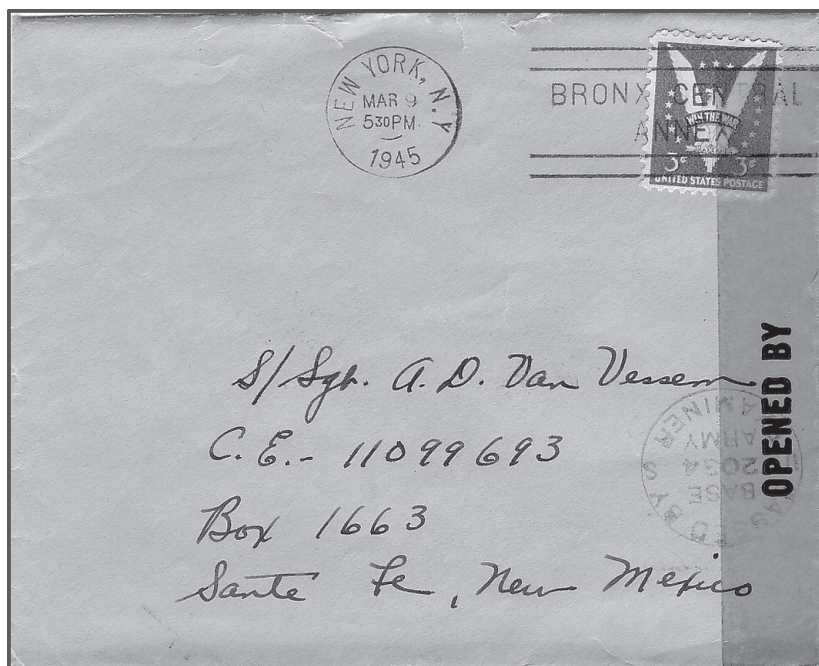 NEW YORK, N.Y.
MAR 9
5 30 PM
1945
BRONX CENTRAL
ANNEX
WIN THE WAR
3¢ 3¢
UNITED STATES POSTAGE
S/Sgt. A. D. Van Vessem
C.E.- 11099693
Box 1663
Sante Fe, New Mexico
OPENED BY
BY
BASE
ARMY
AMINER